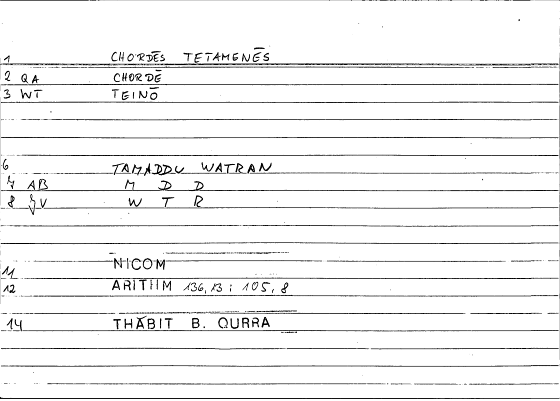 1 CHORDĒS TETAMENĒS
2 QA CHORDĒ
3 WT TEINŌ
6 TAMADDU WATRAN
7 AB M D D
8 JV W T R
11 NICOM
12 ARITHM 136,13 ; 105,8
14 THĀBIT B. QURRA